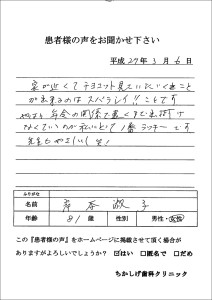 患者様の声をお聞かせ下さい
平成27年3月6日
家が近くてチョコット見てもらいにくること
が出来るのはスバラシイ!!ことです
やはり年令の関係で遠くまで出掛け
なくていいのが私にとって1番ラッキーです
先生もやさしいし
ふりがな
名前
年齢 81歳 性別 男性・女性
この『患者様の声』をホームページに掲載させて頂く場合が
ありますがよろしいでしょうか? ☑はい □匿名で □だめ
ちかしげ歯科クリニック